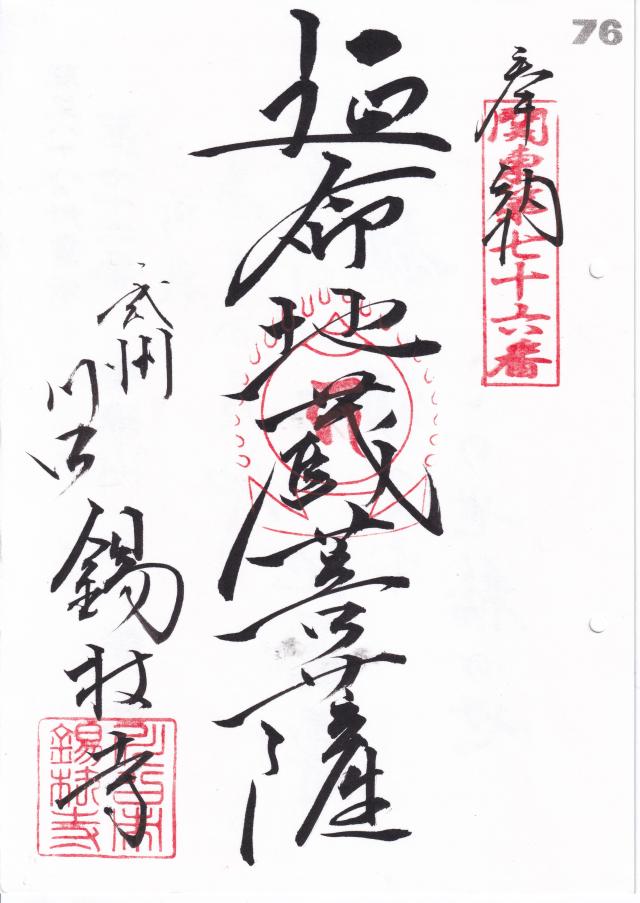 76
奉納
関東第七十六番
延命地蔵菩薩
武州
川口
錫杖寺
川口市
錫杖寺